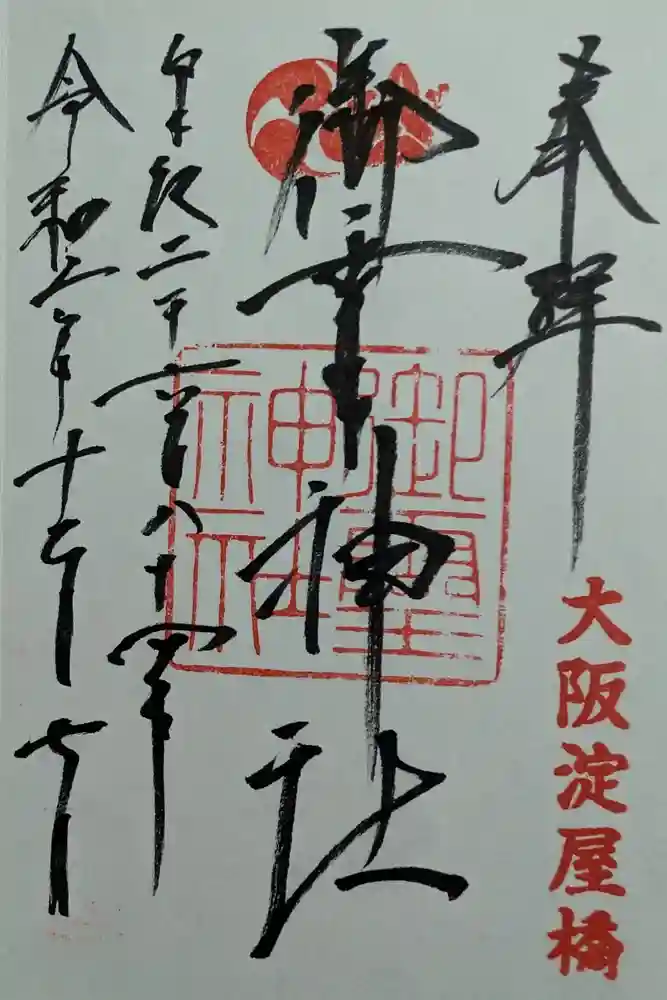 奉拝
大阪淀屋橋
御霊神社
御霊神社
皇紀二千六百八十四年
令和六年十二月七日